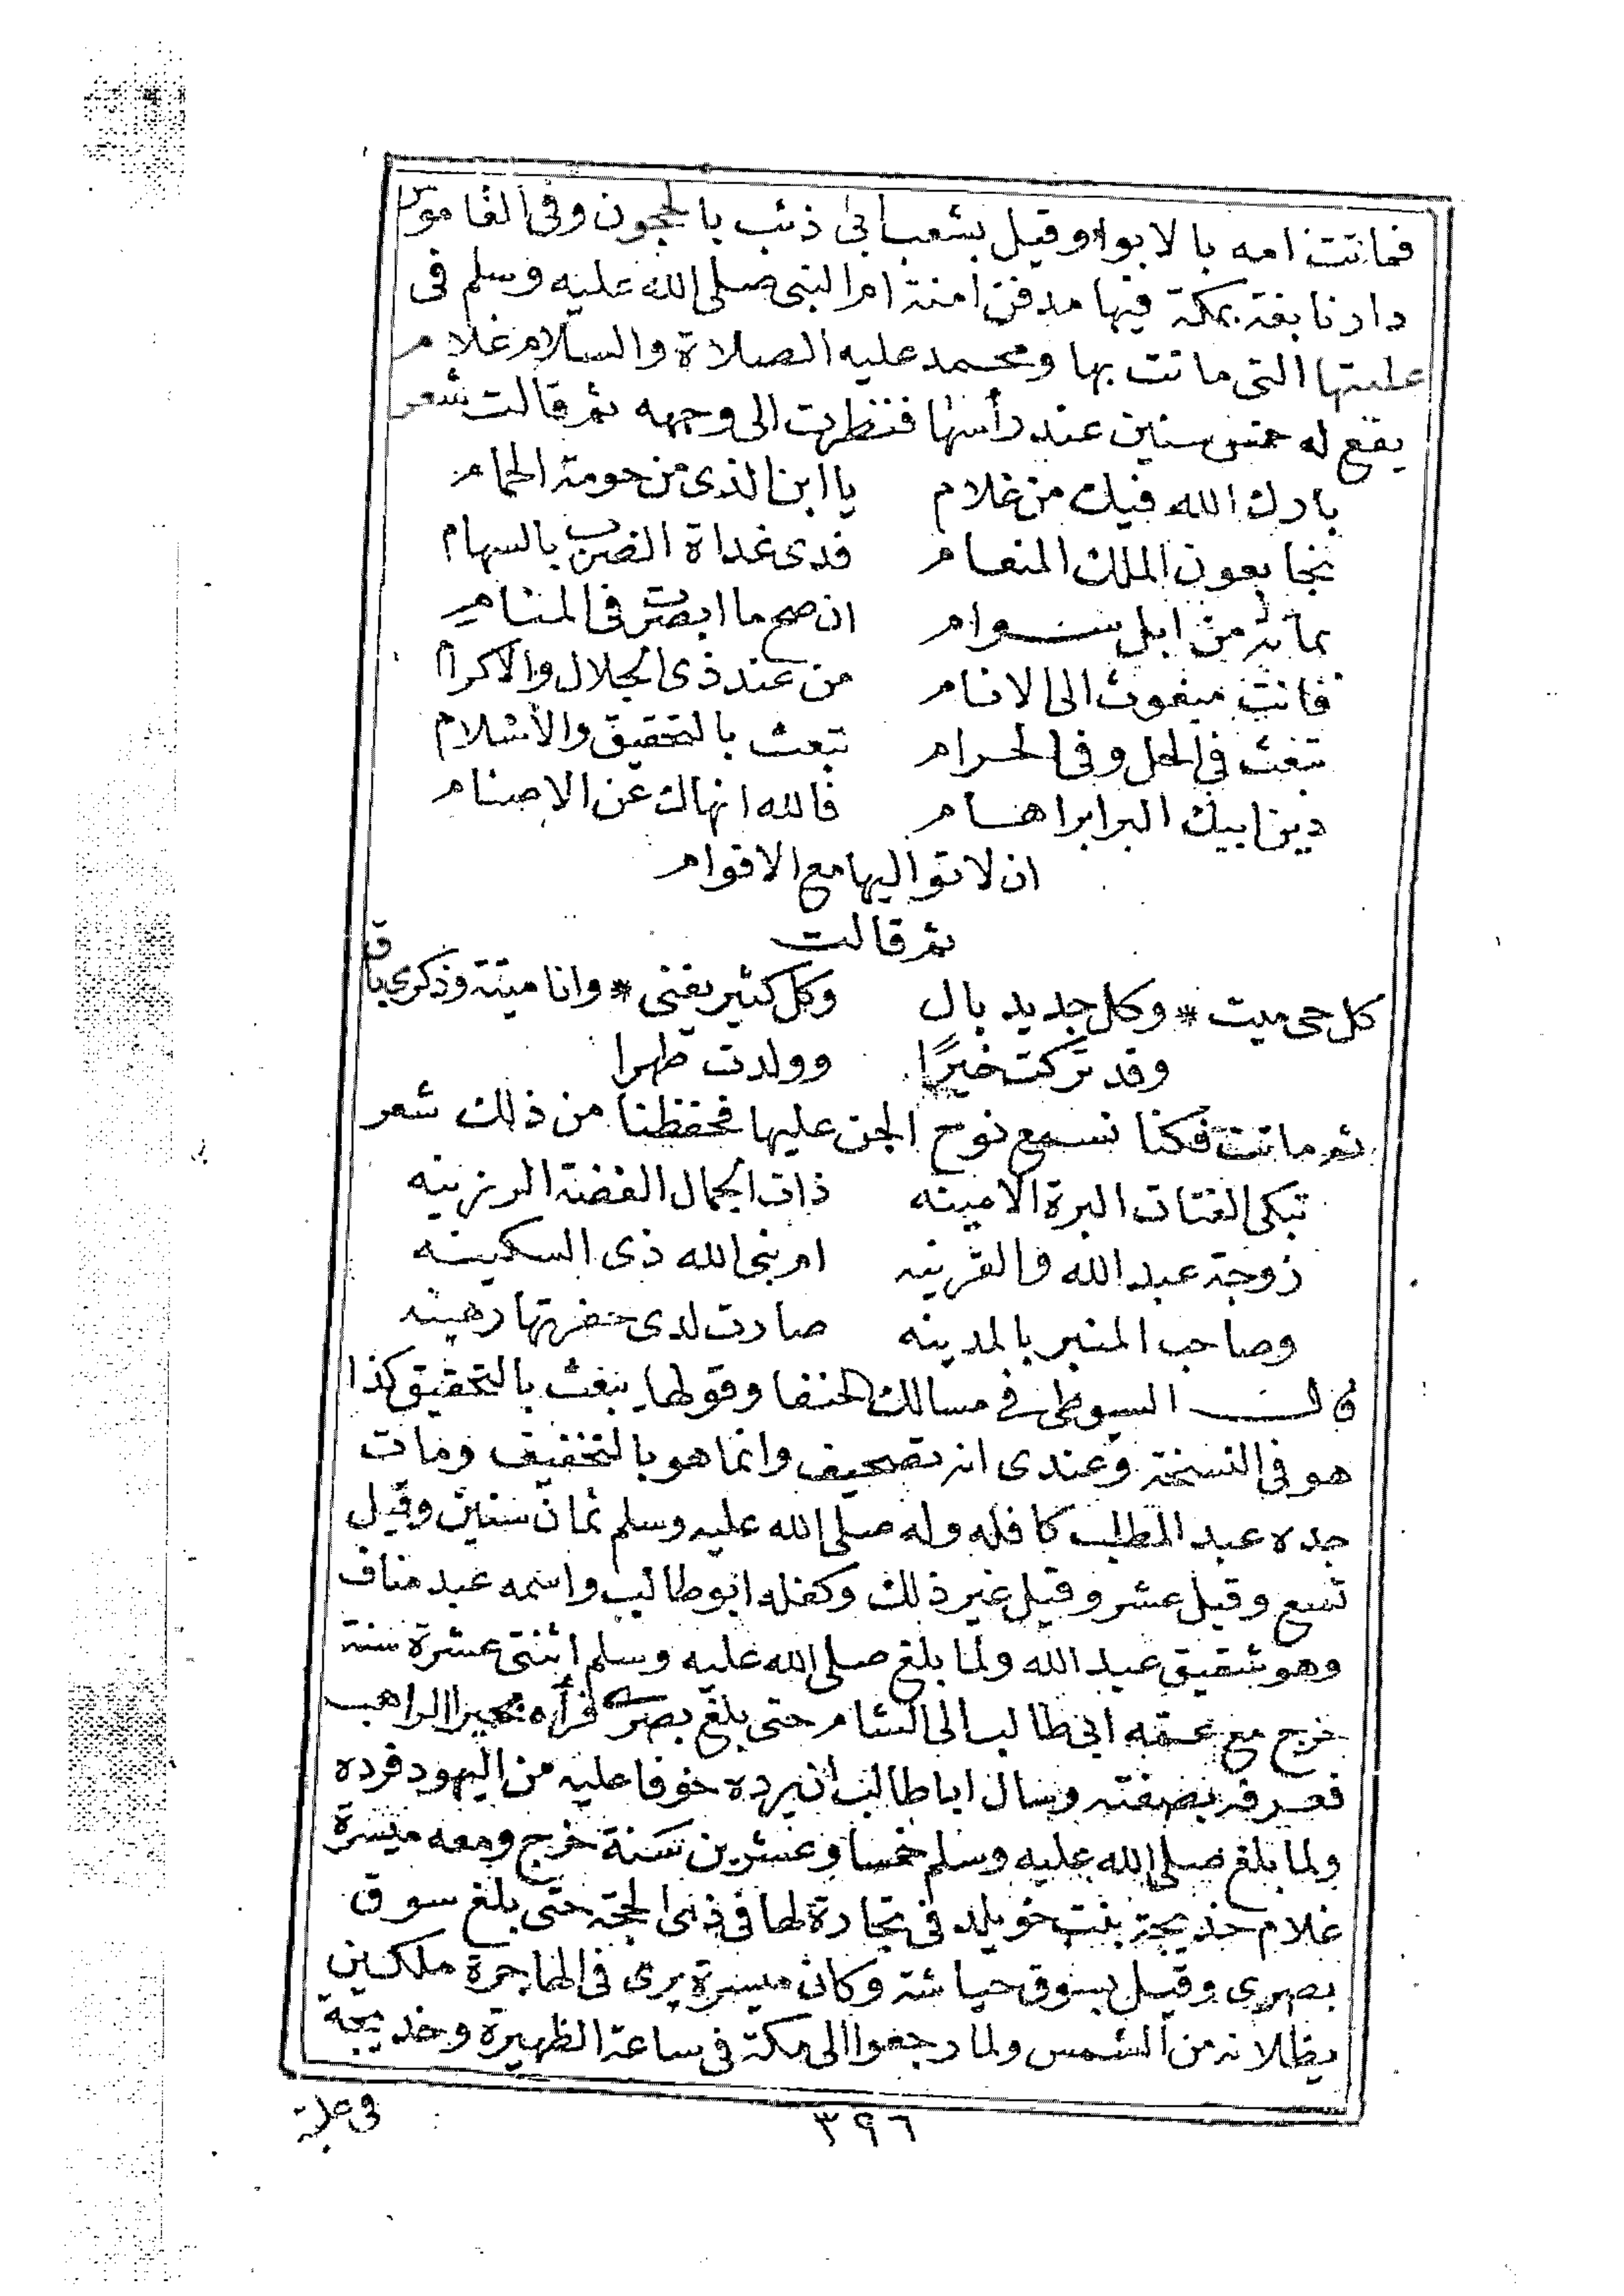 فماتت امه بالابواء وقيل بشعب ابى ذئب بالحجون وفى القاموس
دار نابغة بمكة فيها مدفن امنة ام النبى صلى الله عليه وسلم فى
علبتها التى ماتت بها ومحمد عليه الصلاة والسلام غلام
يقع له خمس سنين عند رأسها فنظرت الى وجهه ثم قالت شعر
بارك الله فيك من غلام يا ابن الذى من حومة الحمام
نجا بعون الملك المنعام فدى غداة الضرب بالسهام
بمائة من ابل سوام ان صح ما ابصرت فى المنام
فانت مبعوث الى الانام من عند ذى الجلال والاكرام
تبعث فى الحل وفى الحرام تبعث بالتحقيق والاسلام
دين ابيك البر ابراهام فالله انهاك عن الاصنام
ان لا تواليها مع الاقوام
ثم قالت
كل حى ميت * وكل جديد بال وكل كثير يفنى * وانا ميتة وذكرى باق
وقد تركت خيرًا وولدت طهرا
ثم ماتت فكنا نسمع نوح الجن عليها فحفظنا من ذلك شعر
تبكى الفتات البرة الامينه ذات الجمال العفة الرزينه
زوجة عبد الله والقرينه ام نبى الله ذى السكينه
وصاحب المنبر بالمدينه صارت لدى حفرتها رهينه
قال السيوطى فى مسالك الحنفا وقولها يبعث بالتحقيق كذا
هو فى النسخة وعندى انه تصحيف وانما هو بالتخفيف ومات
جده عبد المطلب كافله وله صلى الله عليه وسلم ثمان سنين وقيل
تسع وقيل عشر وقيل غير ذلك وكفله ابو طالب واسمه عبد مناف
وهو شقيق عبد الله ولما بلغ صلى الله عليه وسلم اثنتى عشرة سنة
خرج مع عمه ابى طالب الى الشام حتى بلغ بصرى فرآه بحيرا الراهب
فعرفه بصفته وسال ابا طالب ان يرده خوفا عليه من اليهود فرده
ولما بلغ صلى الله عليه وسلم خمسا وعشرين سنة خرج ومعه ميسرة
غلام خذيجة بنت خويلد فى تجارة لها فى ذى الحجة حتى بلغ سوق
بصرى وقيل بسوق حباشة وكان ميسرة يرى فى الهاجرة ملكين
يظلانه من الشمس ولما رجعوا الى مكة فى ساعة الظهيرة وخديجة
فى علية
٣٩٦